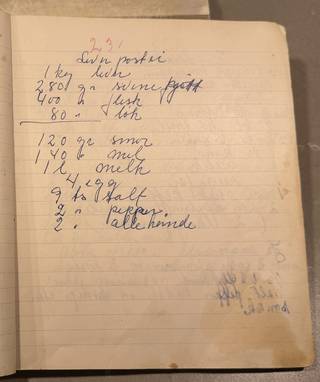 23.
Leverpostei
1 kg lever
280 gr svine kjøtt
400 " flesk
80 " løk
120 gr smør
140 " mel
1 l melk
4 egg
9 ts salt
2 " pepper
2 " allehånde